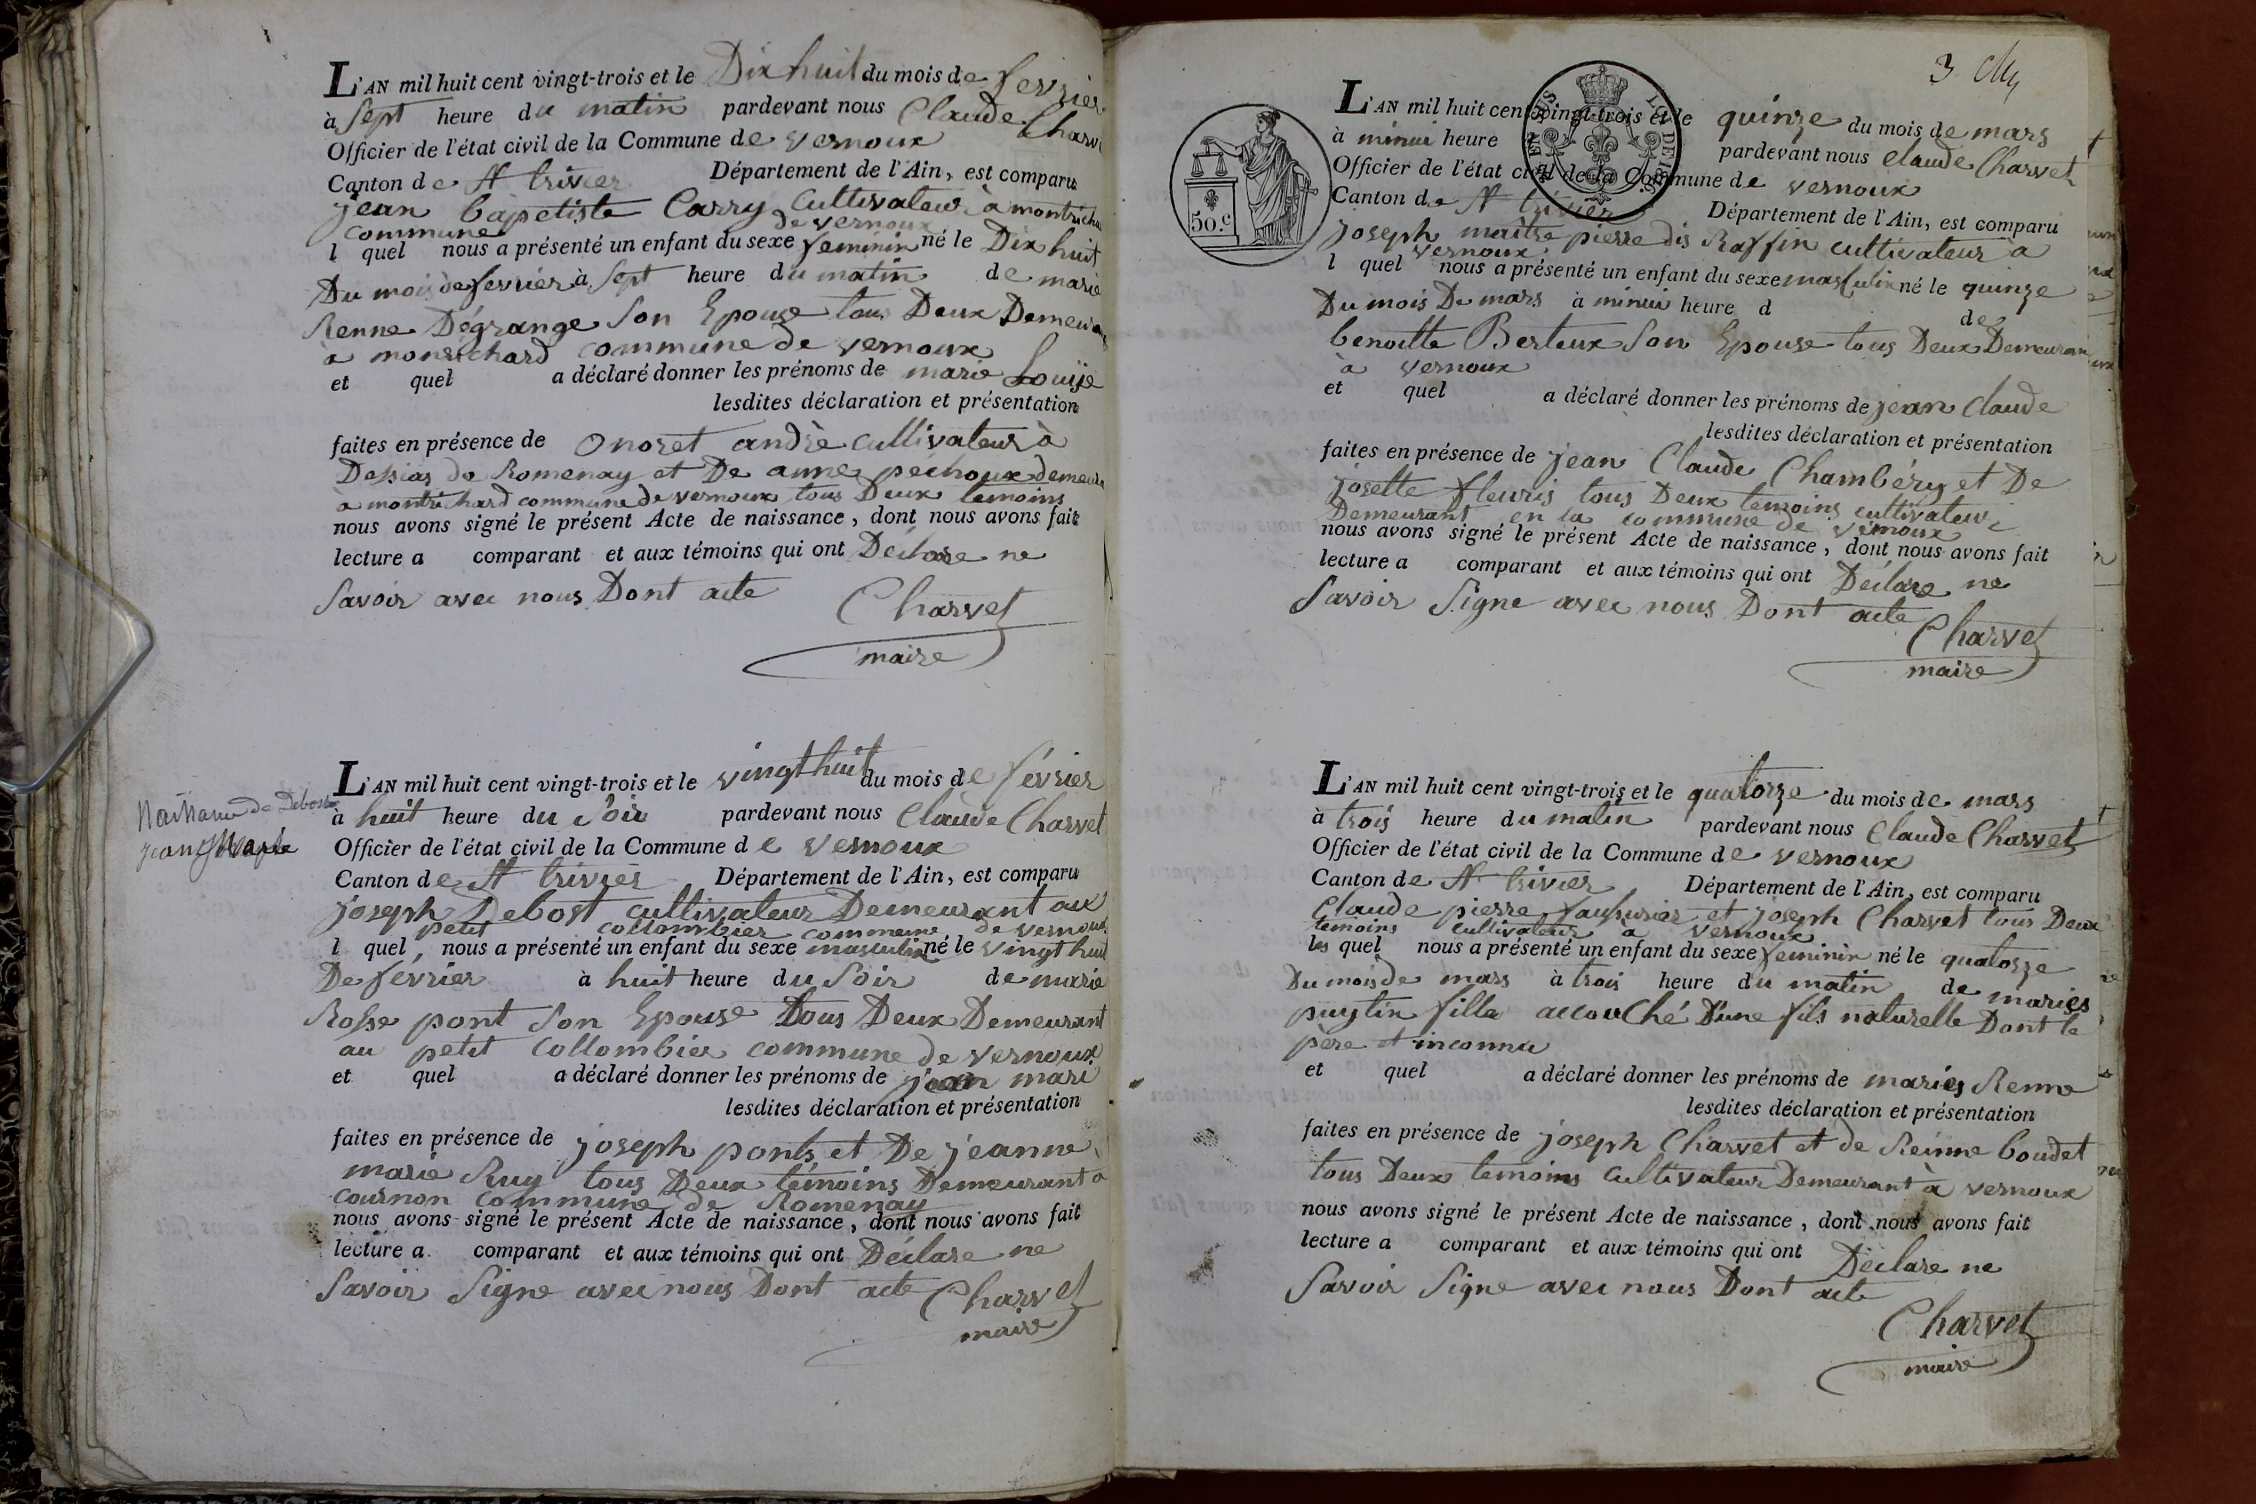 L'AN mil huit cent vingt-trois et le Dix huit du mois de fevrier
à Sept heure du matin pardevant nous Claude Charv
Officier de l'état civil de la Commune de vernoux
Canton de St trivier Département de l'Ain, est comparu
jean bapetiste Carry Cultivateur à montricha
commune de vernoux
l quel nous a présenté un enfant du sexe feminin né le Dix huit
Du mois de fevrier à Sept heure du matin de marie
Renne Dégrange Son Epouse tous Deux Demeura
a monrichard commune de vernoux
et quel a déclaré donner les prénoms de marie Louise
lesdites déclaration et présentation
faites en présence de onoret andré cultivateur à
de Romenay et De anne pechoux demeura
à montrichard commune de vernoux tous Deux temoins
nous avons signé le présent Acte de naissance, dont nous avons fait
lecture a comparant et aux témoins qui ont Déclare ne
Savoir avec nous Dont acte
Charvet
maire
Naissance de Debost
jean
L'AN mil huit cent vingt-trois et le vingt huit du mois de février
à huit heure du Soir pardevant nous Claude Charvet
Officier de l'état civil de la Commune de vernoux
Canton de St trivier Département de l'Ain, est comparu
joseph Debost cultivateur Demeurant aux
petit collombier commune de vernoux
l quel, nous a présenté un enfant du sexe masculin né le vingt huit
De fevrier à huit heure du Soir de marie
Rosse pont Son Epouse tous Deux Demeurant
au petit collombier commune de vernoux
et quel a déclaré donner les prénoms de jean mari
lesdites déclaration et présentation
faites en présence de joseph ponts et De jeanne
marie Ruy tous Deux témoins Demeurant a
cournon commune de Romenay
nous avons signé le présent Acte de naissance, dont nous avons fait
lecture a comparant et aux témoins qui ont Déclare ne
Savoir Signe avec nous Dont acte Charvet
maire
3
50.c
EN SUS
LOI DE
L'AN mil huit cent vingt-trois et le quinze du mois de mars
à minui heure pardevant nous claude Charvet
Officier de l'état civil de la Commune de vernoux
Canton de St trivier Département de l'Ain, est comparu
joseph maître pierre dis Raffin cultivateur à
vernoux
l quel nous a présenté un enfant du sexe masculin né le quinze
Du mois De mars à minui heure d de
benoitte Berteux Son Epouse tous Deux Demeuran
à vernoux
et quel a déclaré donner les prénoms de jean claude
lesdites déclaration et présentation
faites en présence de jean Claude Chambéry et De
josette fleuris tous Deux temoins cultivateur
Demeurant en la commune de vernoux
nous avons signé le présent Acte de naissance, dont nous avons fait
lecture a comparant et aux témoins qui ont Déclare ne
Savoir Signe avec nous Dont acte
Charvet
maire
L'AN mil huit cent vingt-trois et le quatorze du mois de mars
à trois heure du matin pardevant nous Claude Charvet
Officier de l'état civil de la Commune de vernoux
Canton de St trivier Département de l'Ain, est comparu
Claude pierre et joseph Charvet tous Deux
temoins cultivateur a vernoux
les quel nous a présenté un enfant du sexe feminin né le quatorze
Du mois de mars à trois heure du matin de maries
puytin fille accouché D'une fils naturelle Dont le
père et inconnu
et quel a déclaré donner les prénoms de maries Renne
lesdites déclaration et présentation
faites en présence de joseph Charvet et de Reinne boudet
tous Deux temoins cultivateur Demeurant à vernoux
nous avons signé le présent Acte de naissance, dont nous avons fait
lecture a comparant et aux témoins qui ont Déclare ne
Savoir Signe avec nous Dont acte
Charvet
maire